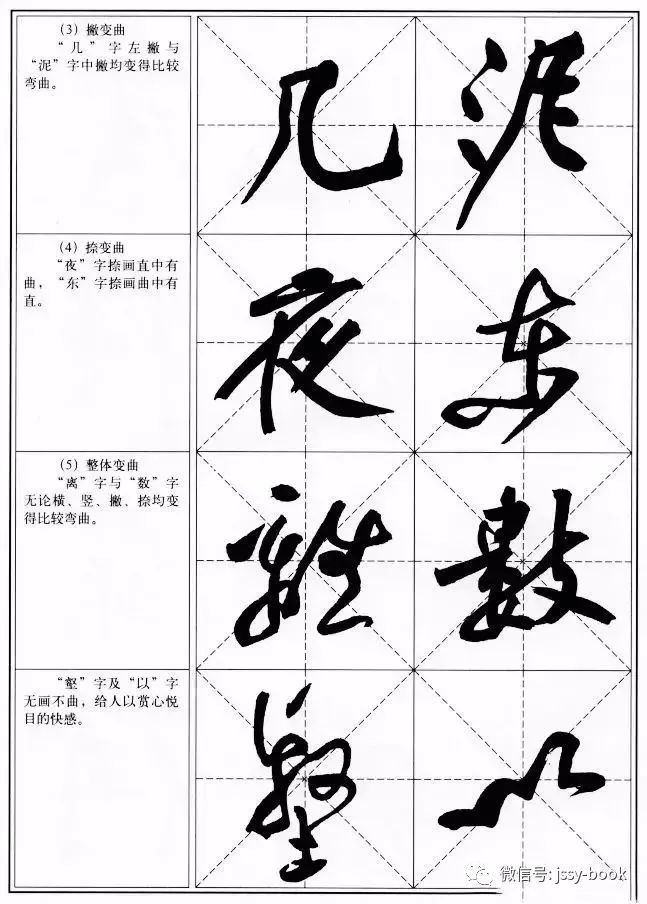 （3）撇变曲
“几”字左撇与
“泥”字中撇均变得比较
弯曲。
几 泥
（4）捺变曲
“夜”字捺画直中有
曲，“东”字捺画曲中有
直。
夜 東
（5）整体变曲
“离”字与“数”字
无论横、竖、撇、捺均变
得比较弯曲。
離 數
“壑”字及“以”字
无画不曲，给人以赏心悦
目的快感。
壑 以
微信号: jssy-book